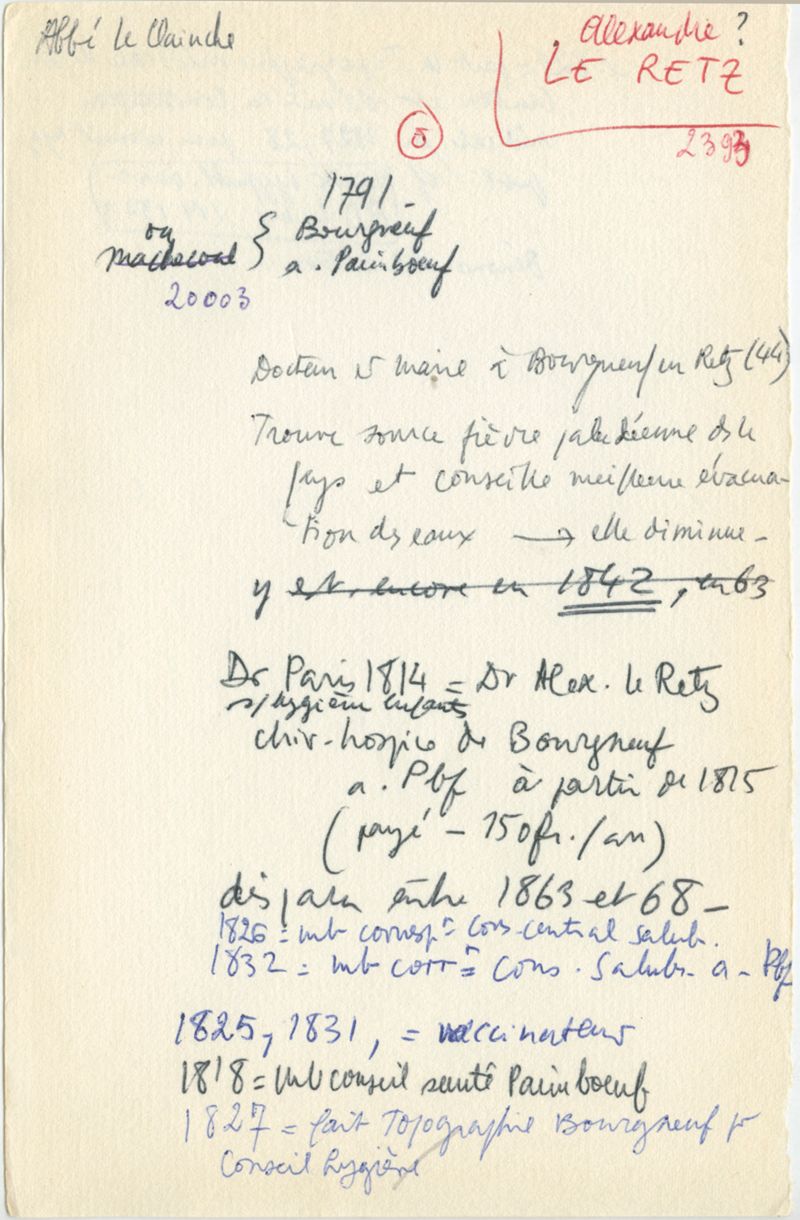 Abbé le Clainche
Alexandre ?
LE RETZ
2393
5
1791 -
ou } Bourgneuf
Machecoul } a. Paimboeuf
20003
Docteur et maire à Bourgneuf en Retz (44)
Trouve source fièvre paludéenne ds le
pays et conseille meilleure évacua-
tion des eaux → elle diminue -
y est encore en 1842, en 63
Dr Paris 1814 = Dr Alex. le Retz
s/hygiène enfants
chir-hospice de Bourgneuf
a. Pbf à partir de 1815
(payé - 150 fr./an)
disparu entre 1863 et 68 -
1826 = mb corresp^t Cons. central salub.
1832 = mb corr^t = Cons. Salub. a - Pbf
1825, 1831, = vaccinateur
1818 = mb conseil santé Paimboeuf
1827 = fait Topographie Bourgneuf pr
Conseil hygiène